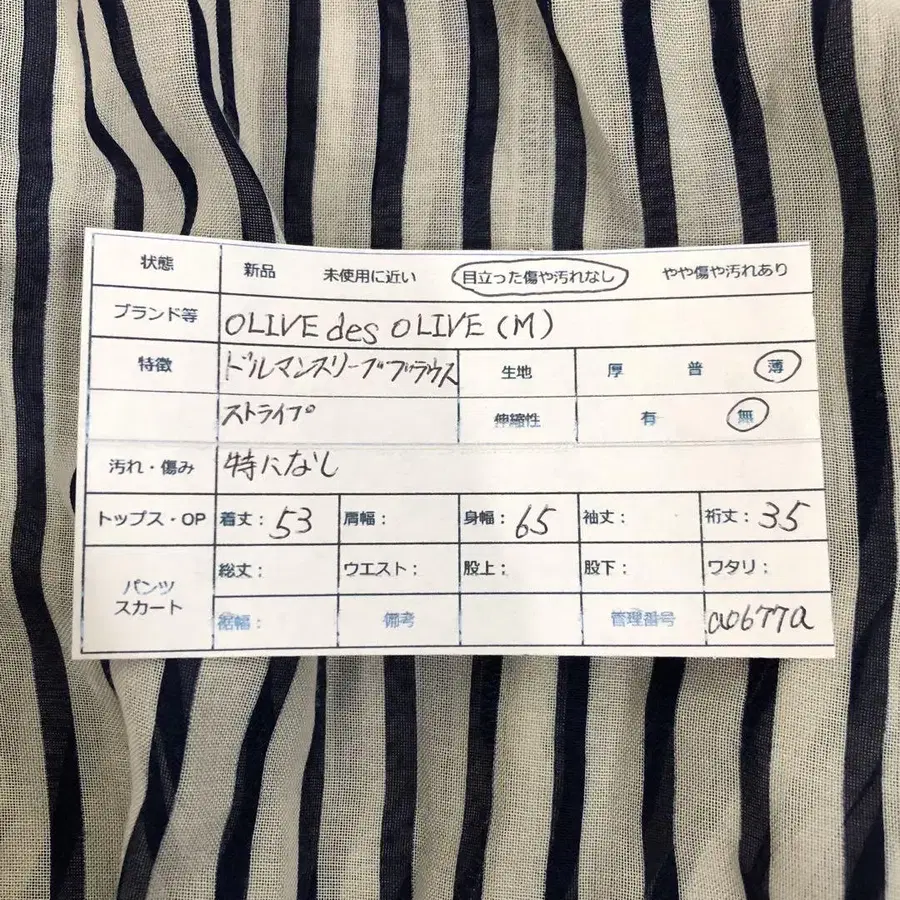 状態 新品 未使用に近い 目立った傷や汚れなし やや傷や汚れあり
ブランド等 OLIVE des OLIVE (M)
特徴 ドルマンスリーブブラウス 生地 厚 普 薄
ストライプ 伸縮性 有 無
汚れ・傷み 特になし
トップス・OP 着丈: 53 肩幅: 身幅: 65 袖丈: 裄丈: 35
パンツ スカート 総丈: ウエスト: 股上: 股下: ワタリ:
裾幅: 備考 管理番号 a0677a